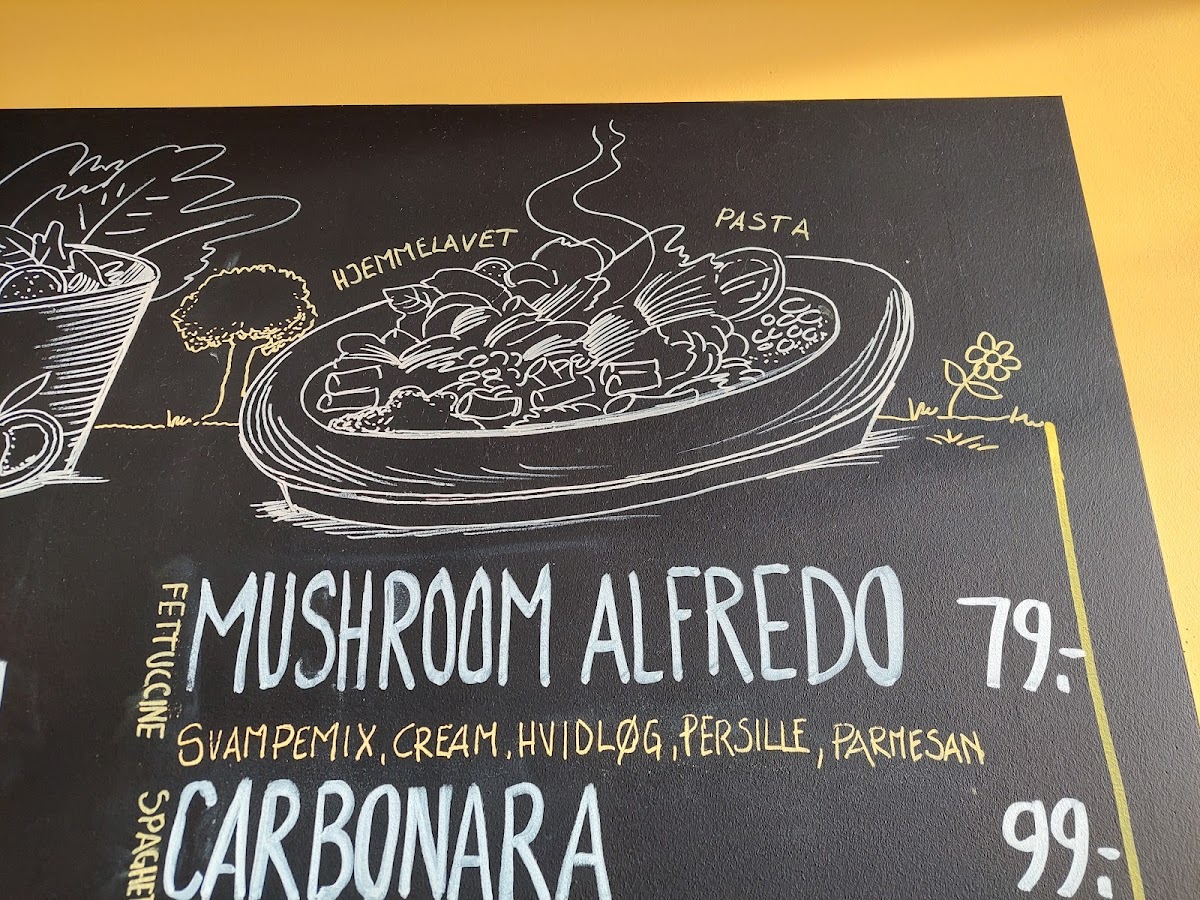 HJEMMELAVET PASTA
FETTUCCINE
MUSHROOM ALFREDO 79.-
SVAMPEMIX, CREAM, HVIDLØG, PERSILLE, PARMESAN
CARBONARA 99.-